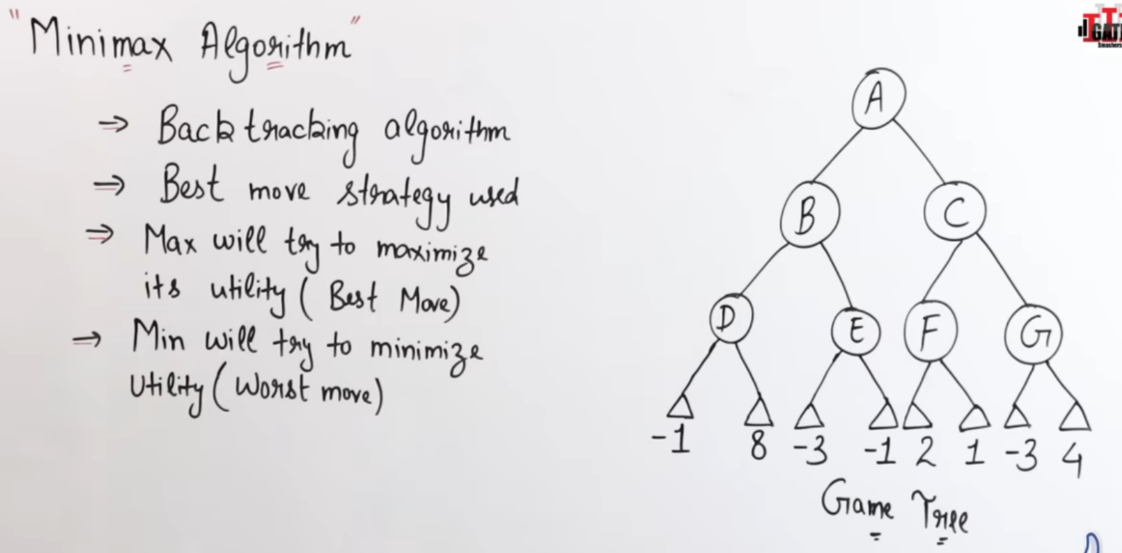 "Minimax Algorithm"
⇒ Backtracking algorithm
⇒ Best move strategy used
⇒ Max will try to maximize
its utility (Best Move)
⇒ Min will try to minimize
utility (Worst move)
A
B C
D E F G
-1 8 -3 -1 2 1 -3 4
Game Tree
GATE
Smashers